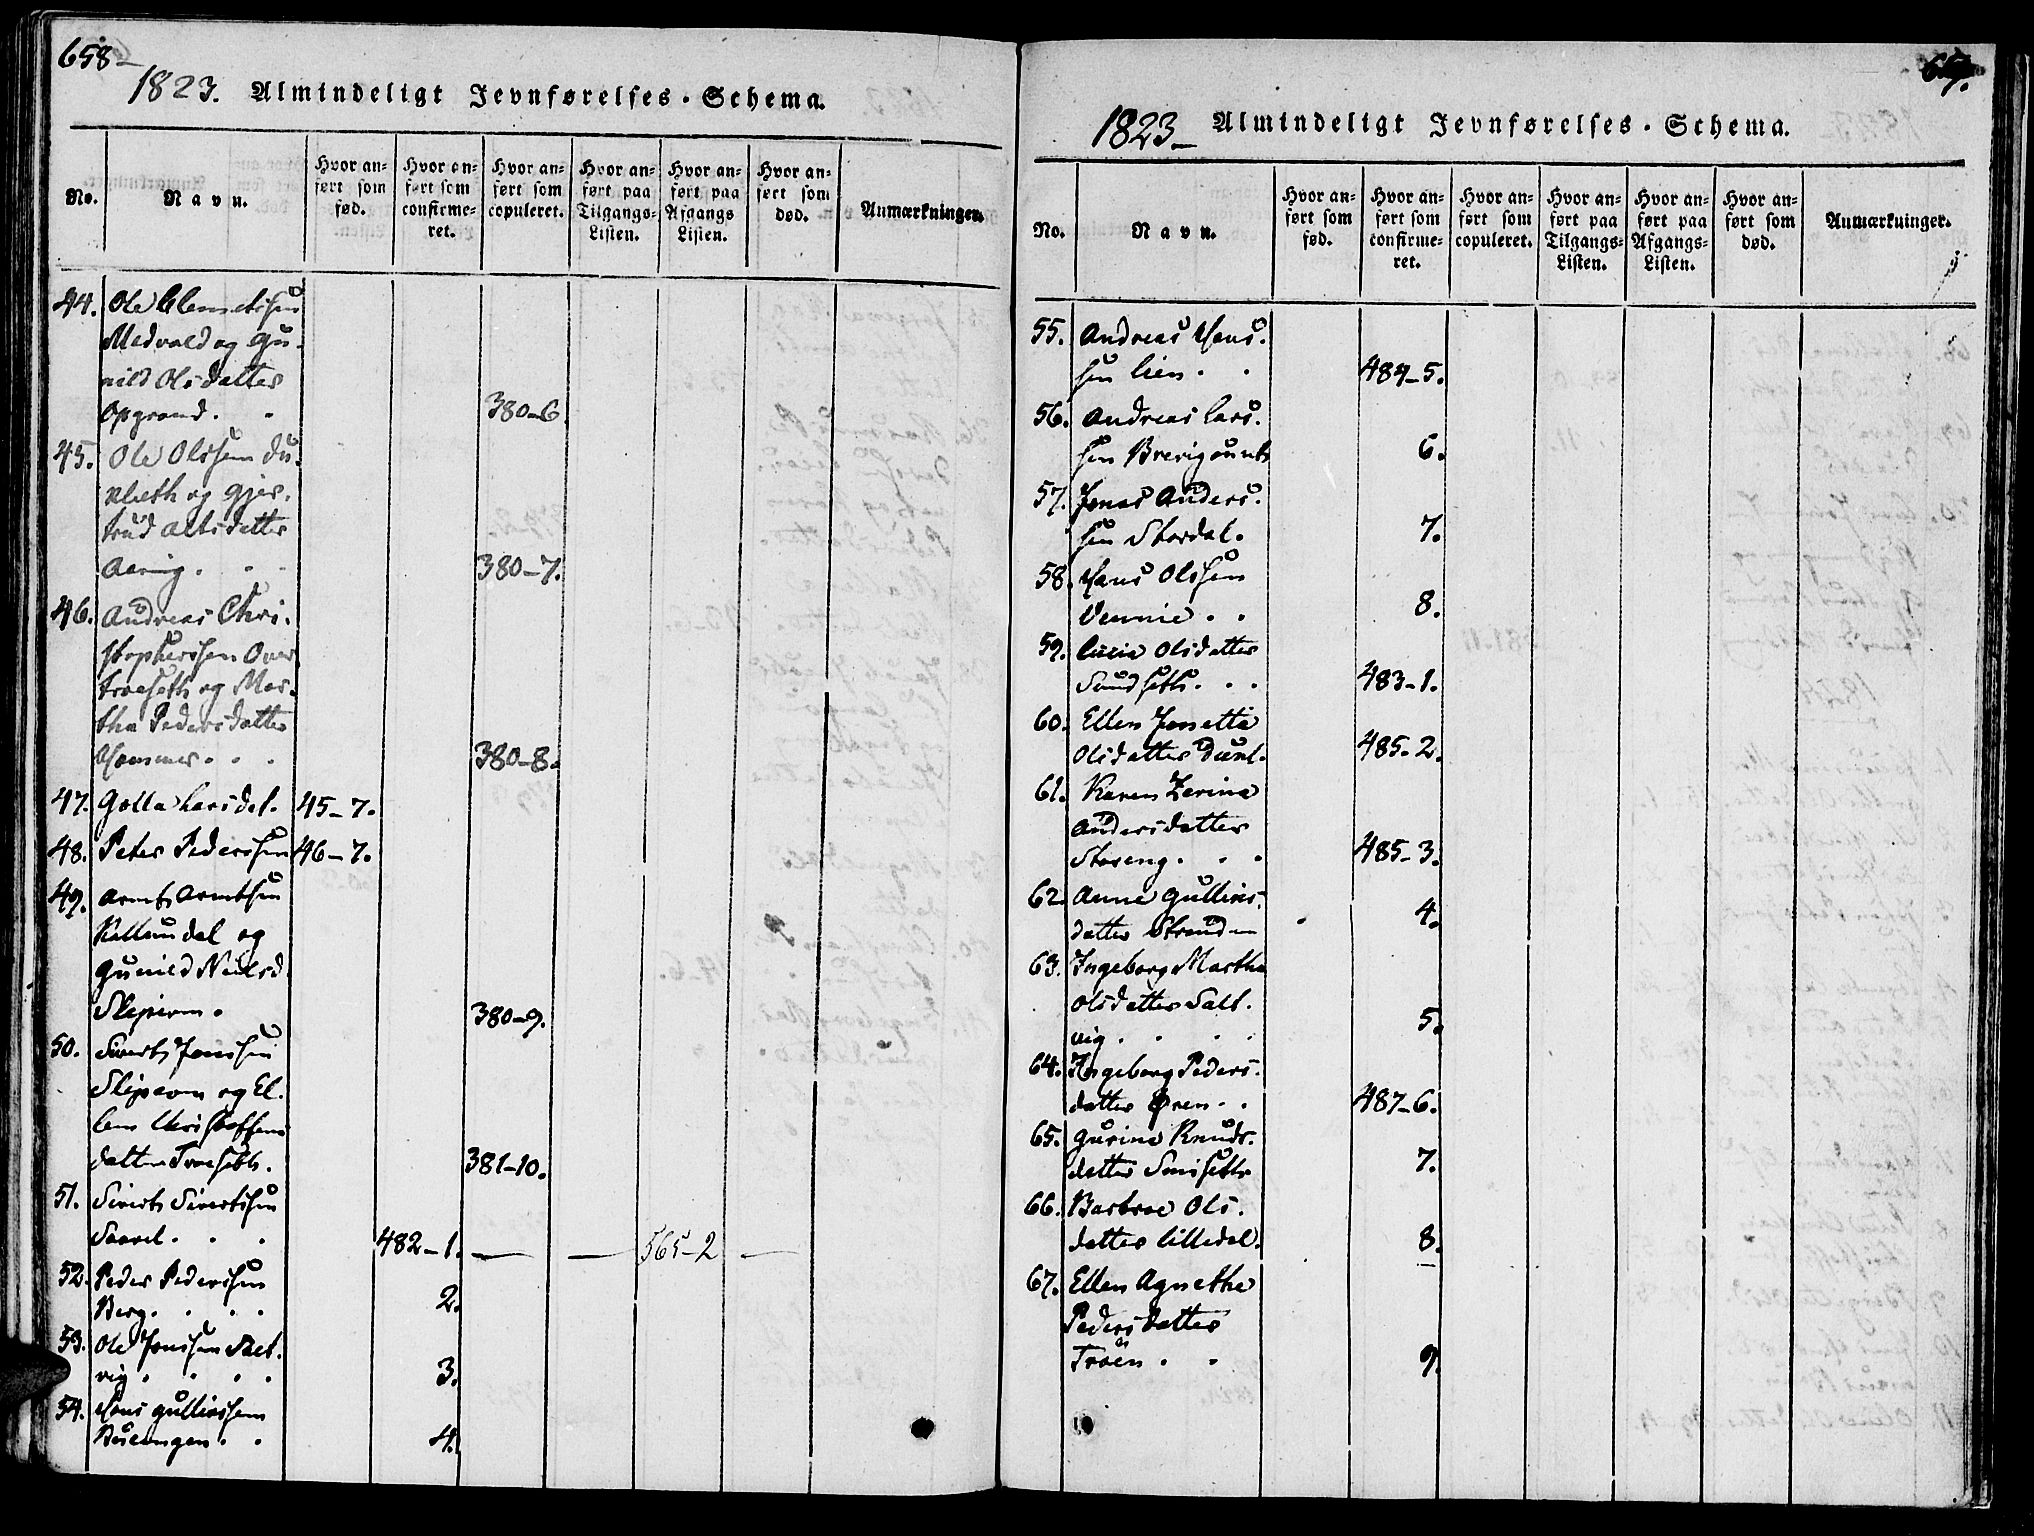 658-
1823. Almindeligt Jevnførelses-Schema.
No.
Navn.
Hvor an-
ført som
fød.
Hvor an-
ført som
confirme-
ret.
Hvor an-
ført som
copuleret.
Hvor an-
ført paa
Tilgangs-
Listen.
Hvor an-
ført paa
Afgangs
Listen.
Hvor an-
ført som
død.
Anmærkninger.
44. Ole Clemetsen
Medvold og Gu-
nild Olsdatter
Opgrand. . 380-6.
45. Ole Olssen
og Gjer-
trud
. . . 380-7.
46. Andreas Chri-
stophersen Over
troeseth og Mar-
tha Pedersdatter
Hammer. . . 380-8.
47. Golla Larsdat. 45-7.
48. Peter Pederssen 46-7.
49. Arnt Arntsen
og
Gunild Nielsd.
. 380-9.
50. Sivert Jonssen
og El-
len Christoffers
datter Troeseth. 381-10.
51. Sivert Sivertssen
. . . 482-1. — — 565-2 —
52. Peder Pederssen
Berg. . . . 2.
53. Ole Jonssen Salt-
vig. . . . 3.
54. Hans Gulliussen
. . 4.
1823- Almindeligt Jevnførelses-Schema.
No.
Navn.
Hvor an-
ført som
fød.
Hvor an-
ført som
confirme-
ret.
Hvor an-
ført som
copuleret.
Hvor an-
ført paa
Tilgangs-
Listen.
Hvor an-
ført paa
Afgangs-
Listen.
Hvor an-
ført som
død.
Anmærkninger.
55. Andreas Hans-
sen Lien. . 484-5.
56. Andreas Lars-
sen 6.
57. Jonas Anders-
sen Stordal. 7.
58. Hans Olssen
Vennie. . 8.
59. Lucia Olsdatter
Sundseth. . . 483-1.
60. Ellen Jonetta
Olsdatter 485-2.
61. Karen Zerina
Andersdatter
Storeng. . . 485-3.
62. Anne Gullius-
datter Strand 4.
63. Ingeborg Martha
Olsdatter Salt-
vig. . . . 5.
64. Ingeborg Peders-
datter Øren. . 487-6.
65. Gurina Knuds-
datter 7.
66. Barbroe Ols-
datter Lilledal. 8.
67. Ellen Agnethe
Pedersdatter
Troen. . 9.